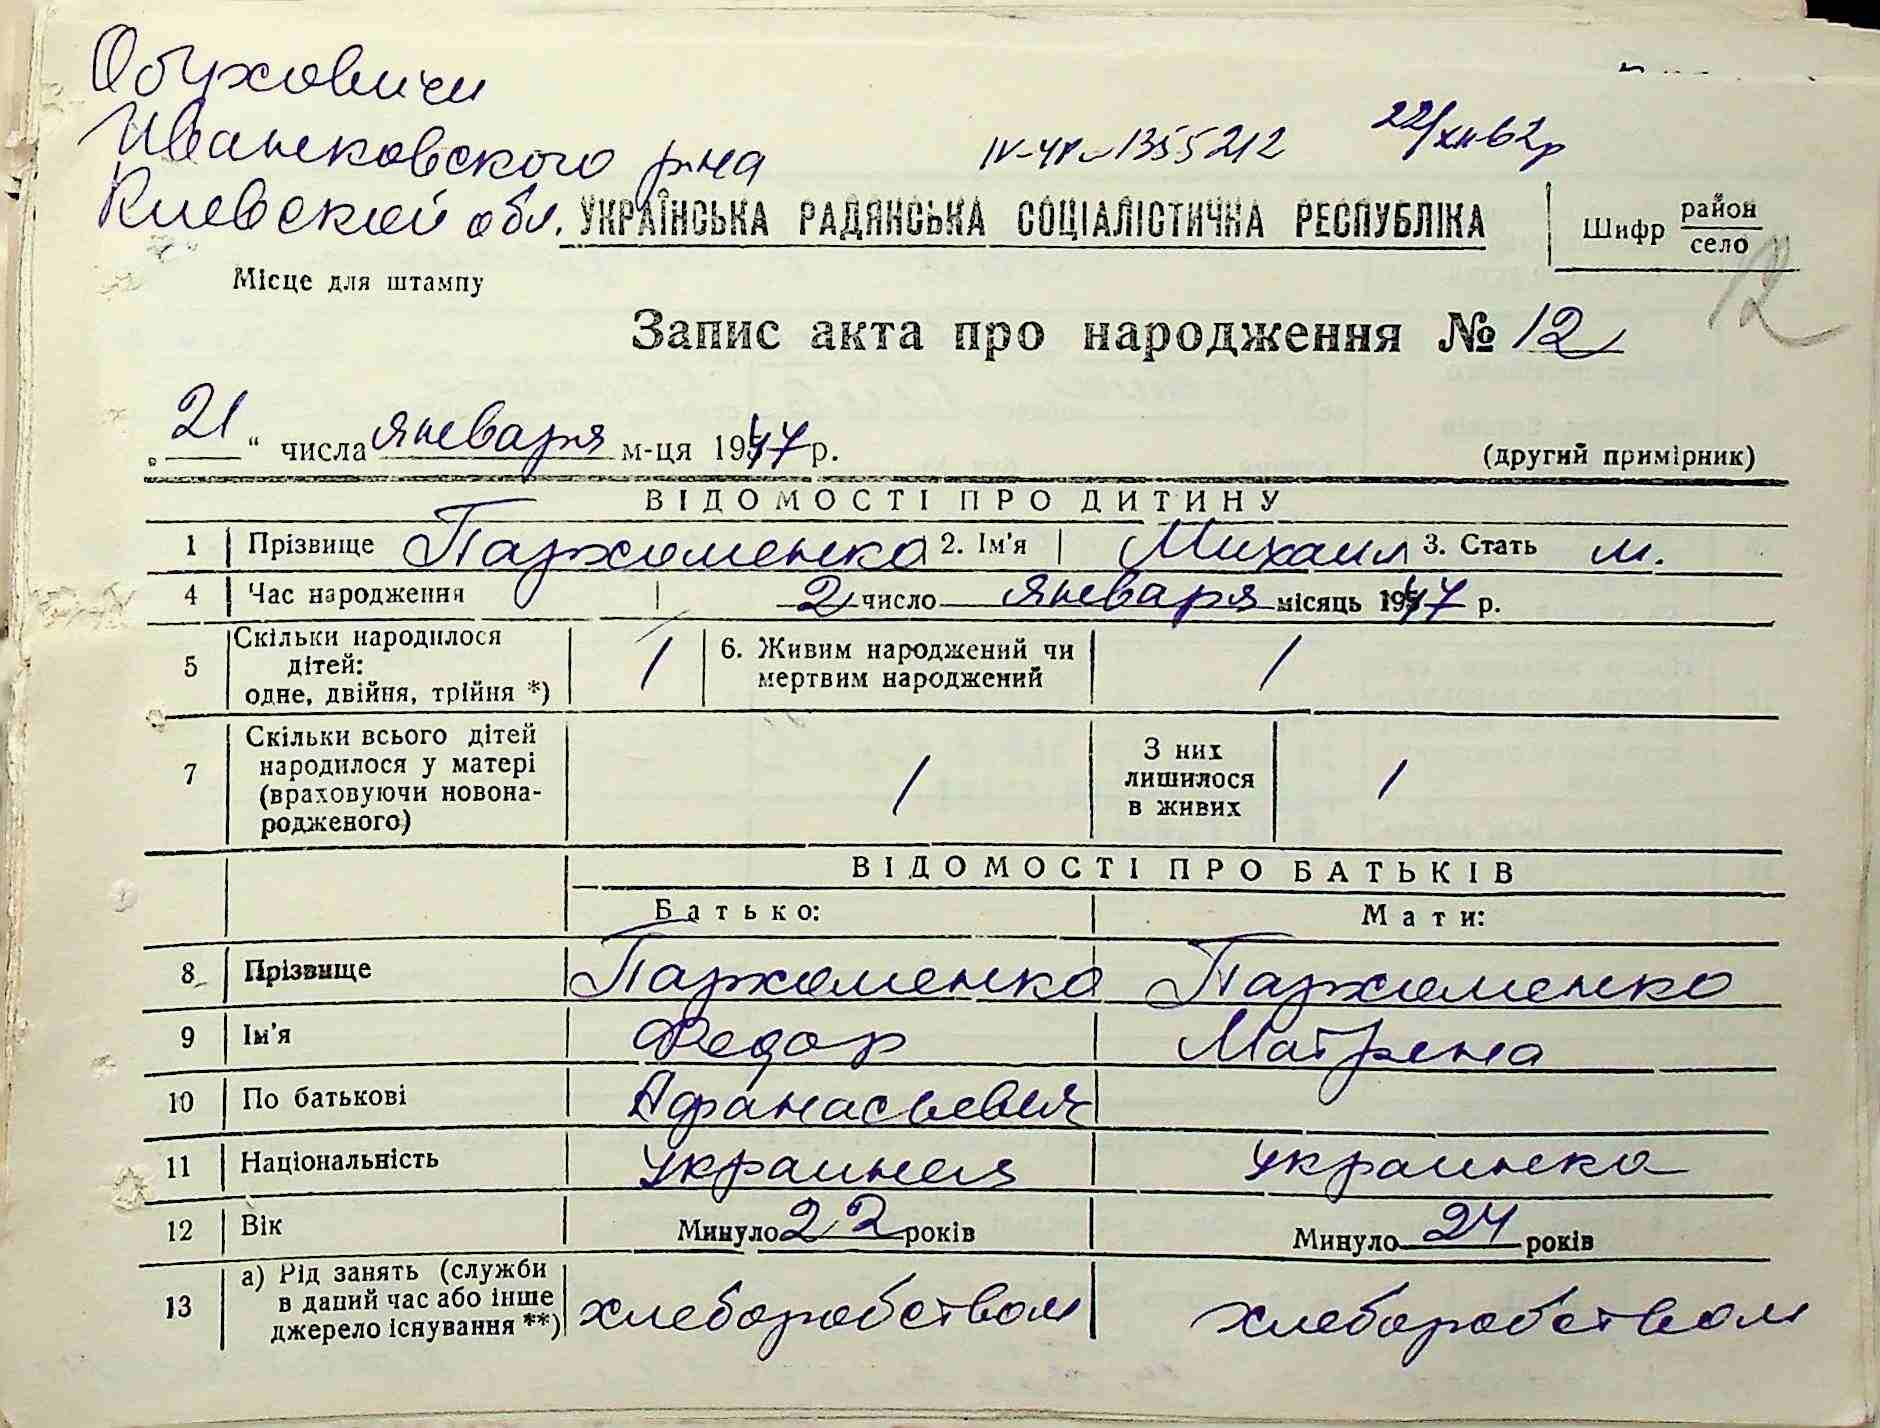 Обуховичи
Иванковского р-на
Киевской обл.
IV-ЧР-1355212
22/XII-62р
УКРАЇНСЬКА РАДЯНСЬКА СОЦІАЛІСТИЧНА РЕСПУБЛІКА
Шифр район
село
12
Місце для штампу
Запис акта про народження № 12
„21“ числа января м-ця 1947 р.
(другий примірник)
ВІДОМОСТІ ПРО ДИТИНУ
1 Прізвище Пархоменко 2. Ім'я Михаил 3. Стать м.
4 Час народження 2 число января місяць 1947 р.
5 Скільки народилося
дітей:
одне, двійня, трійня *) 1
6. Живим народжений чи
мертвим народжений 1
7 Скільки всього дітей
народилося у матері
(враховуючи новона-
родженого) 1
З них
лишилося
в живих 1
ВІДОМОСТІ ПРО БАТЬКІВ
Батько: Мати:
8 Прізвище Пархоменко Пархоменко
9 Ім'я Федор Матрена
10 По батькові Афанасьевич
11 Національність украинец украинка
12 Вік Минуло 22 років Минуло 24 років
13 а) Рід занять (служби
в даний час або інше
джерело існування **) хлеборобством хлеборобством